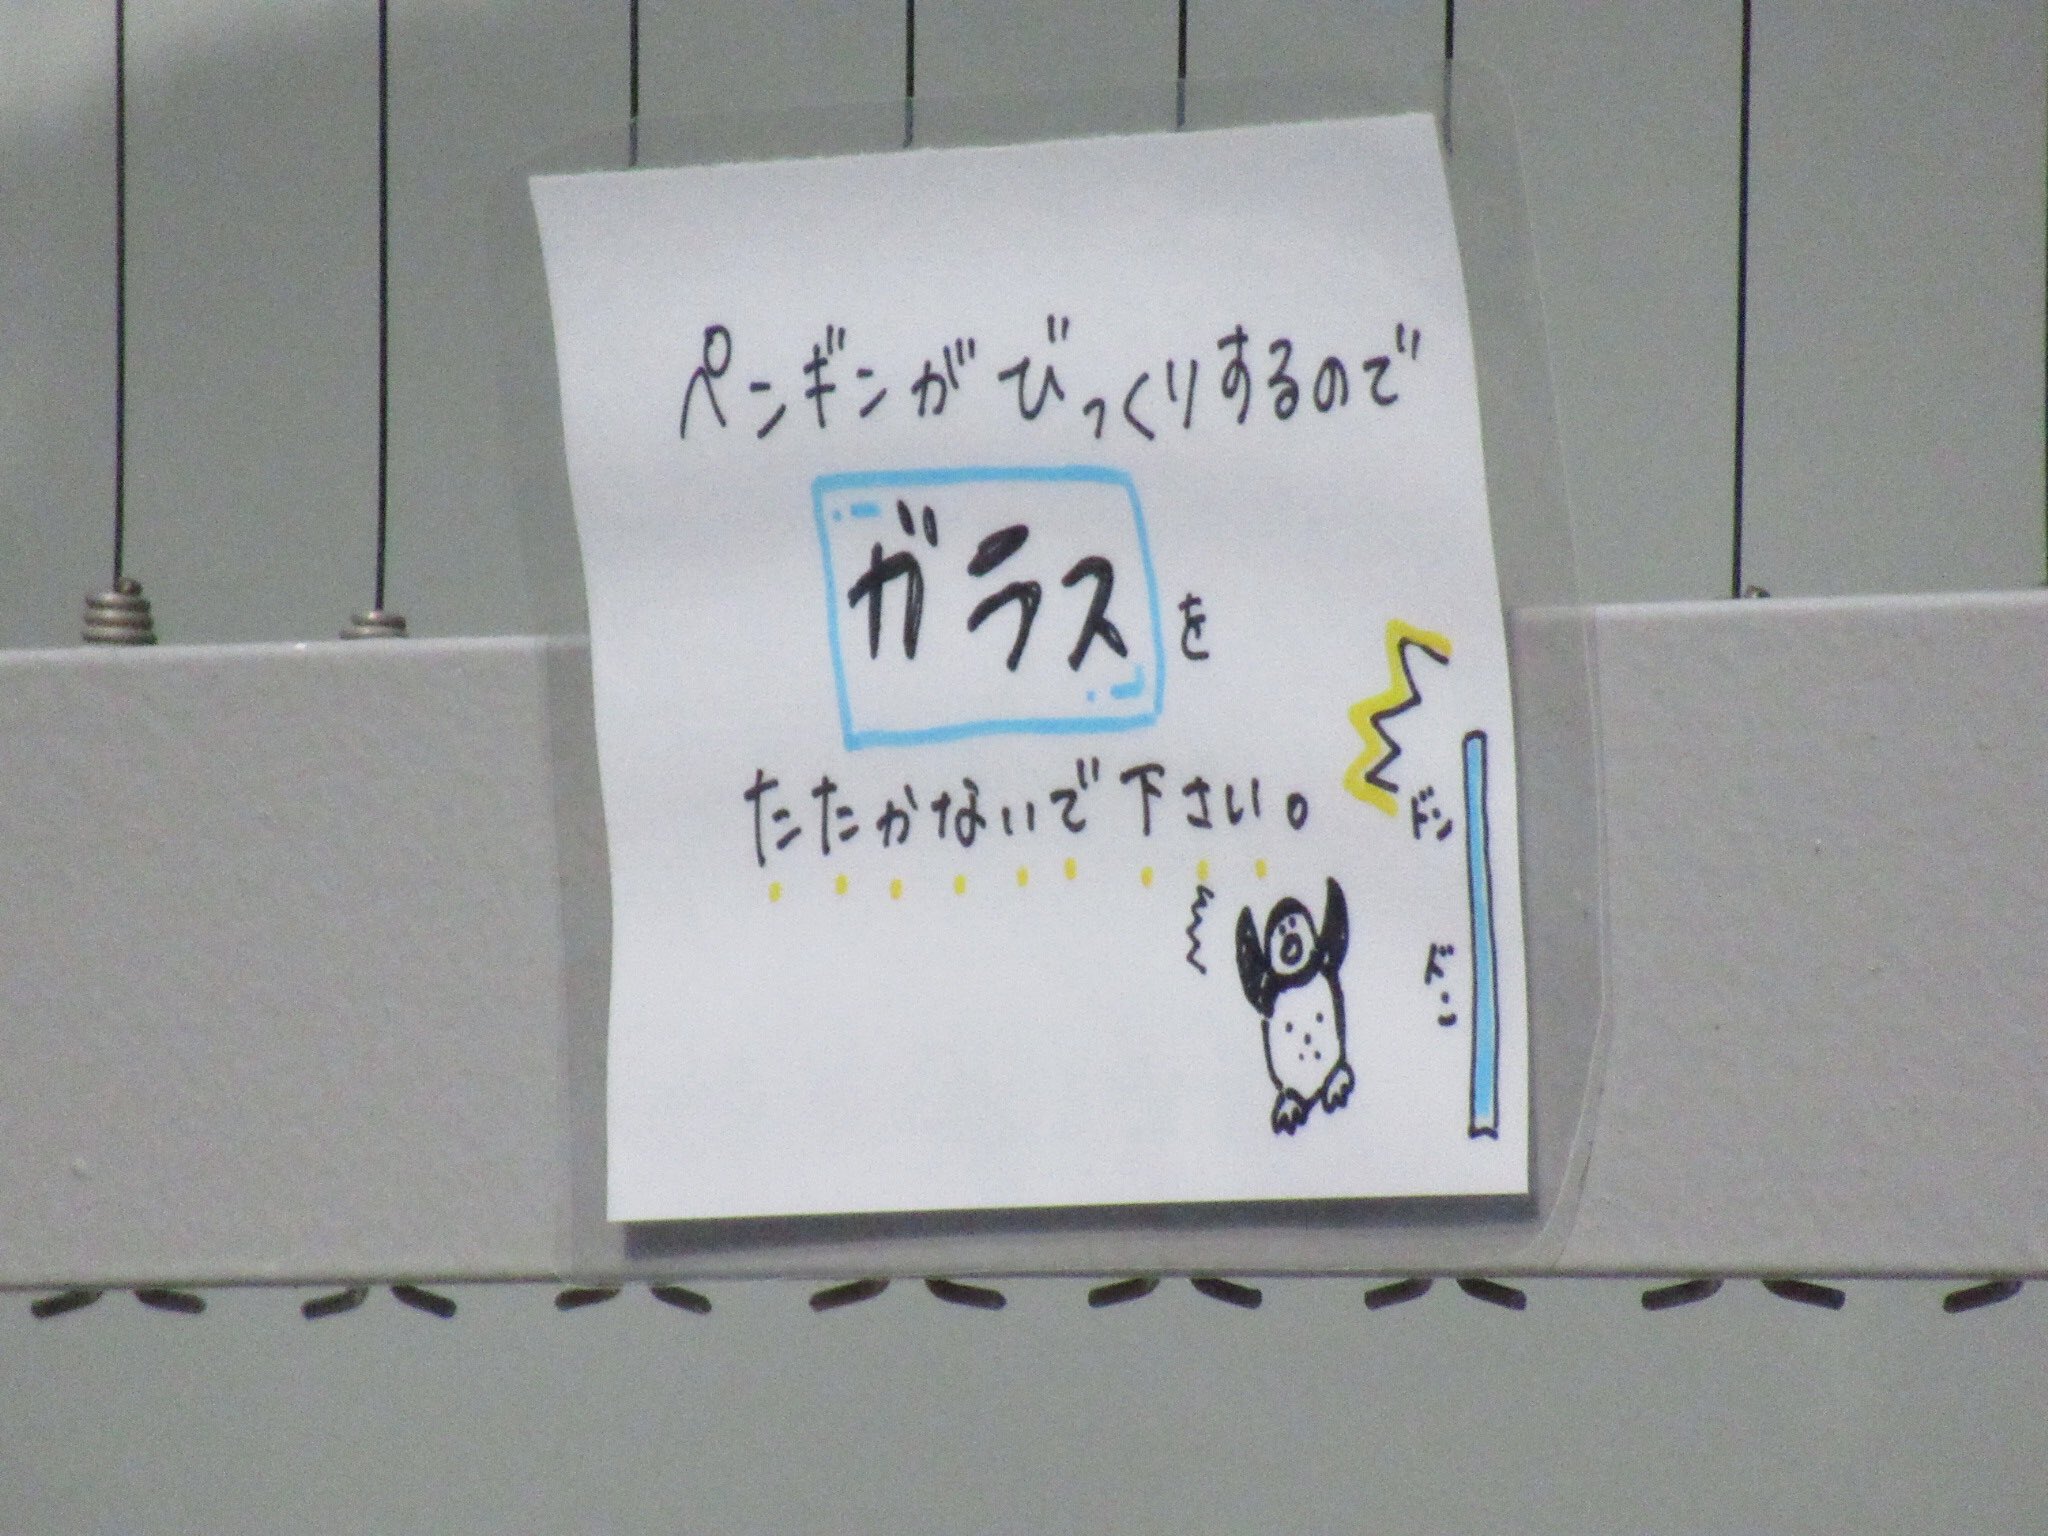 ペンギンがびっくりするので
ガラスを
たたかないで下さい。
ドン
ドン